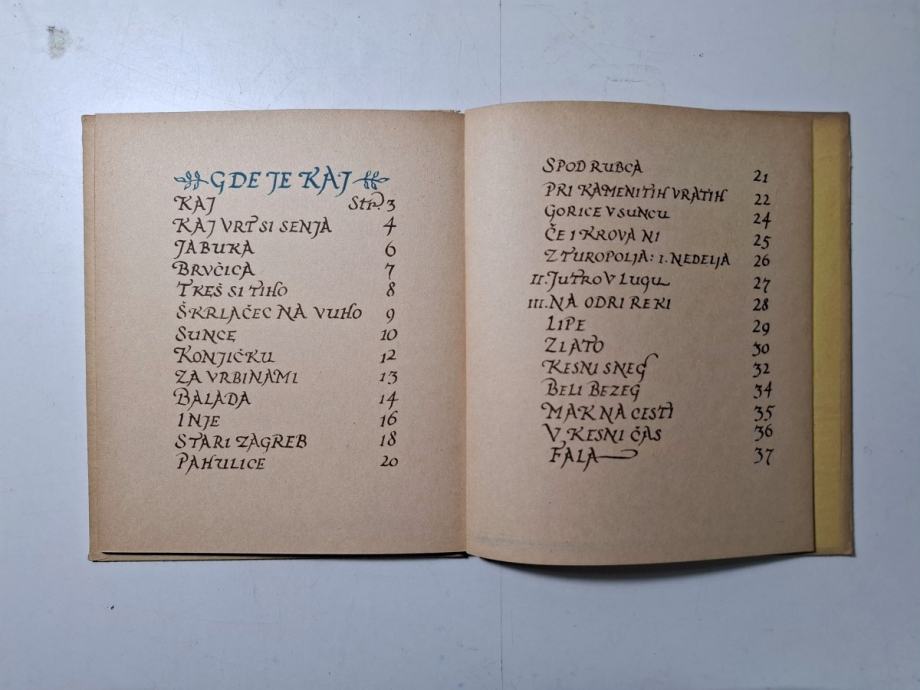 GDE JE KAJ
KAJ Str. 3
KAJ VRT SI SENJA 4
JABUKA 6
BRVČICA 7
TKEŠ SI TIHO 8
ŠKRLAČEC NA VUHO 9
SUNCE 10
KONJIČKU 12
ZA VRBINAMI 13
BALADA 14
INJE 16
STARI ZAGREB 18
PAHULICE 20
SPOD RUBCA 21
PRI KAMENITIH VRATIH 22
GORICE V SUNCU 24
ČE I KROVA NI 25
Z TUROPOLJA: I. NEDELJA 26
II. JUTRO V LUGU 27
III. NA ODRI REKI 28
LIPE 29
ZLATO 30
KESNI SNEG 32
BELI BEZEG 34
MAK NA CESTI 35
V KESNI ČAS 36
FALA 37